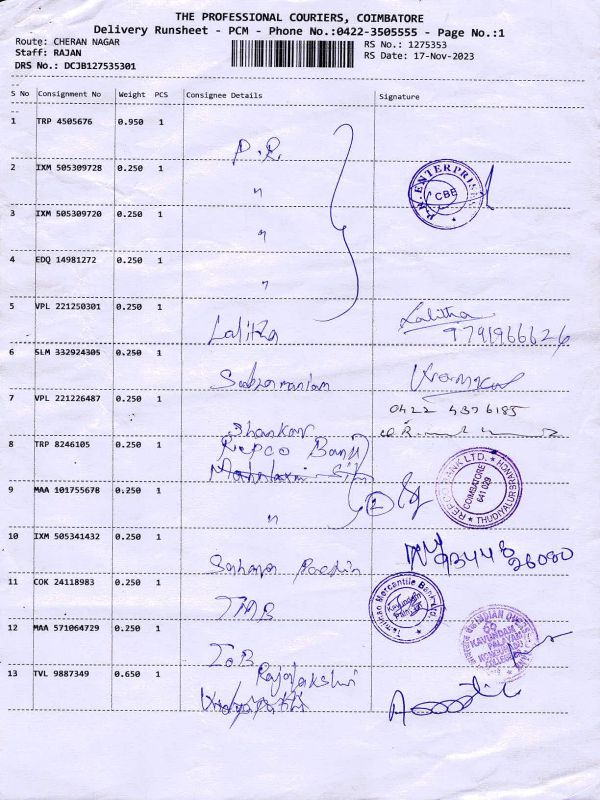 THE PROFESSIONAL COURIERS, COIMBATORE
Delivery Runsheet - PCM - Phone No.:0422-3505555 - Page No.:1
Route: CHERAN NAGAR RS No.: 1275353
Staff: RAJAN RS Date: 17-Nov-2023
DRS No.: DCJB127535301
S No Consignment No Weight PCS Consignee Details Signature
1 TRP 4505676 0.950 1
P.R.
2 IXM 505309728 0.250 1
" P.N. ENTERPRISES CBE
3 IXM 505309720 0.250 1
"
4 EDQ 14981272 0.250 1
"
5 VPL 221250301 0.250 1
Lalitha Lalitha
9791966626
6 SLM 332924305 0.250 1
Subramaniam
7 VPL 221226487 0.250 1
0422 4376185
Shankar
8 TRP 8246105 0.250 1
Repco Bank
REPCO BANK LTD. COIMBATORE 641 029 THUDIYALUR BRANCH
9 MAA 101755678 0.250 1
" 2
10 IXM 505341432 0.250 1
93448 26080
11 COK 24118983 0.250 1
TMB Tamilnad Mercantile Bank Ltd.
12 MAA 571064729 0.250 1
IOB INDIAN OVERSEAS KAVUNDAM PALAYAM
13 TVL 9887349 0.650 1
Rajalakshmi